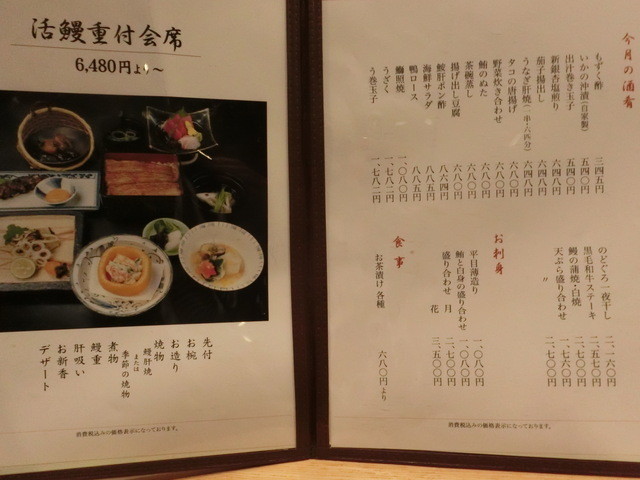 活鰻重付会席
6,480円より～
先付
お椀
お造り
焼物
鰻肝焼
または
季節の焼物
煮物
鰻重
肝吸い
お新香
デザート
消費税込みの価格表示になっております。
今月の酒肴
もずく酢 三四五円
いかの沖漬(自家製) 五四〇円
出汁巻き玉子 五四〇円
新銀杏塩煎り 六四八円
茄子揚出し 六四八円
うなぎ肝焼 六四八円
タコの唐揚げ 六八〇円
野菜炊き合わせ 六八〇円
鮪のぬた 六八〇円
茶碗蒸し 六八〇円
揚げ出し豆腐 六八〇円
鮟肝ポン酢 八六四円
海鮮サラダ 八八五円
鴨ロース 八八五円
照焼 一、〇八〇円
うざく 一、七八二円
う巻玉子 一、七八二円
のどぐろ一夜干し 二、一六〇円
黒毛和牛ステーキ 二、五七〇円
鰻の蒲焼・白焼 一、七六〇円
天ぷら盛り合わせ 二、七〇〇円
〃
お刺身
平目薄造り 一、〇八〇円
鮪と白身の盛り合わせ 一、〇八〇円
盛り合わせ 月 二、七〇〇円
花 三、五〇〇円
食事
お茶漬け 各種 六八〇円より
消費税込みの価格表示になっております。